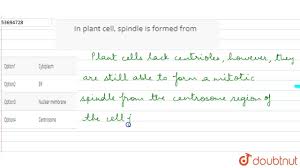 53694728
In plant cell, spindle is formed from
Option1 Cytoplasm
Option2 ER
Option3 Nuclear membrane
Option4 Centrosome
Plant cells lack centrioles, however, they
are still able to form a mitotic
spindle from the centrosome region of
the cell
doubtnut